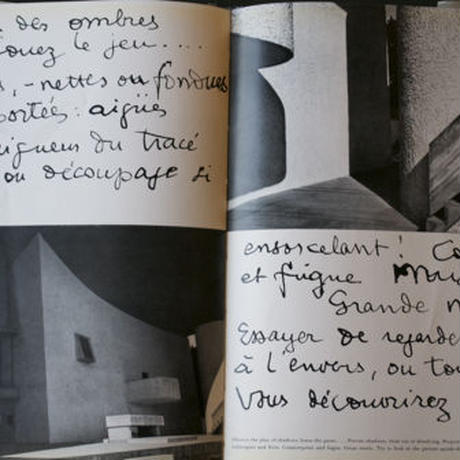 des ombres
jouez le jeu....
- nettes ou fondues
portées: aigües
rigueur du tracé
ou découpage si
ensorcelant! Co
et fugue Mus
Grande m
Essayer de regarde
à l'envers, ou tou
Vous découvrirez